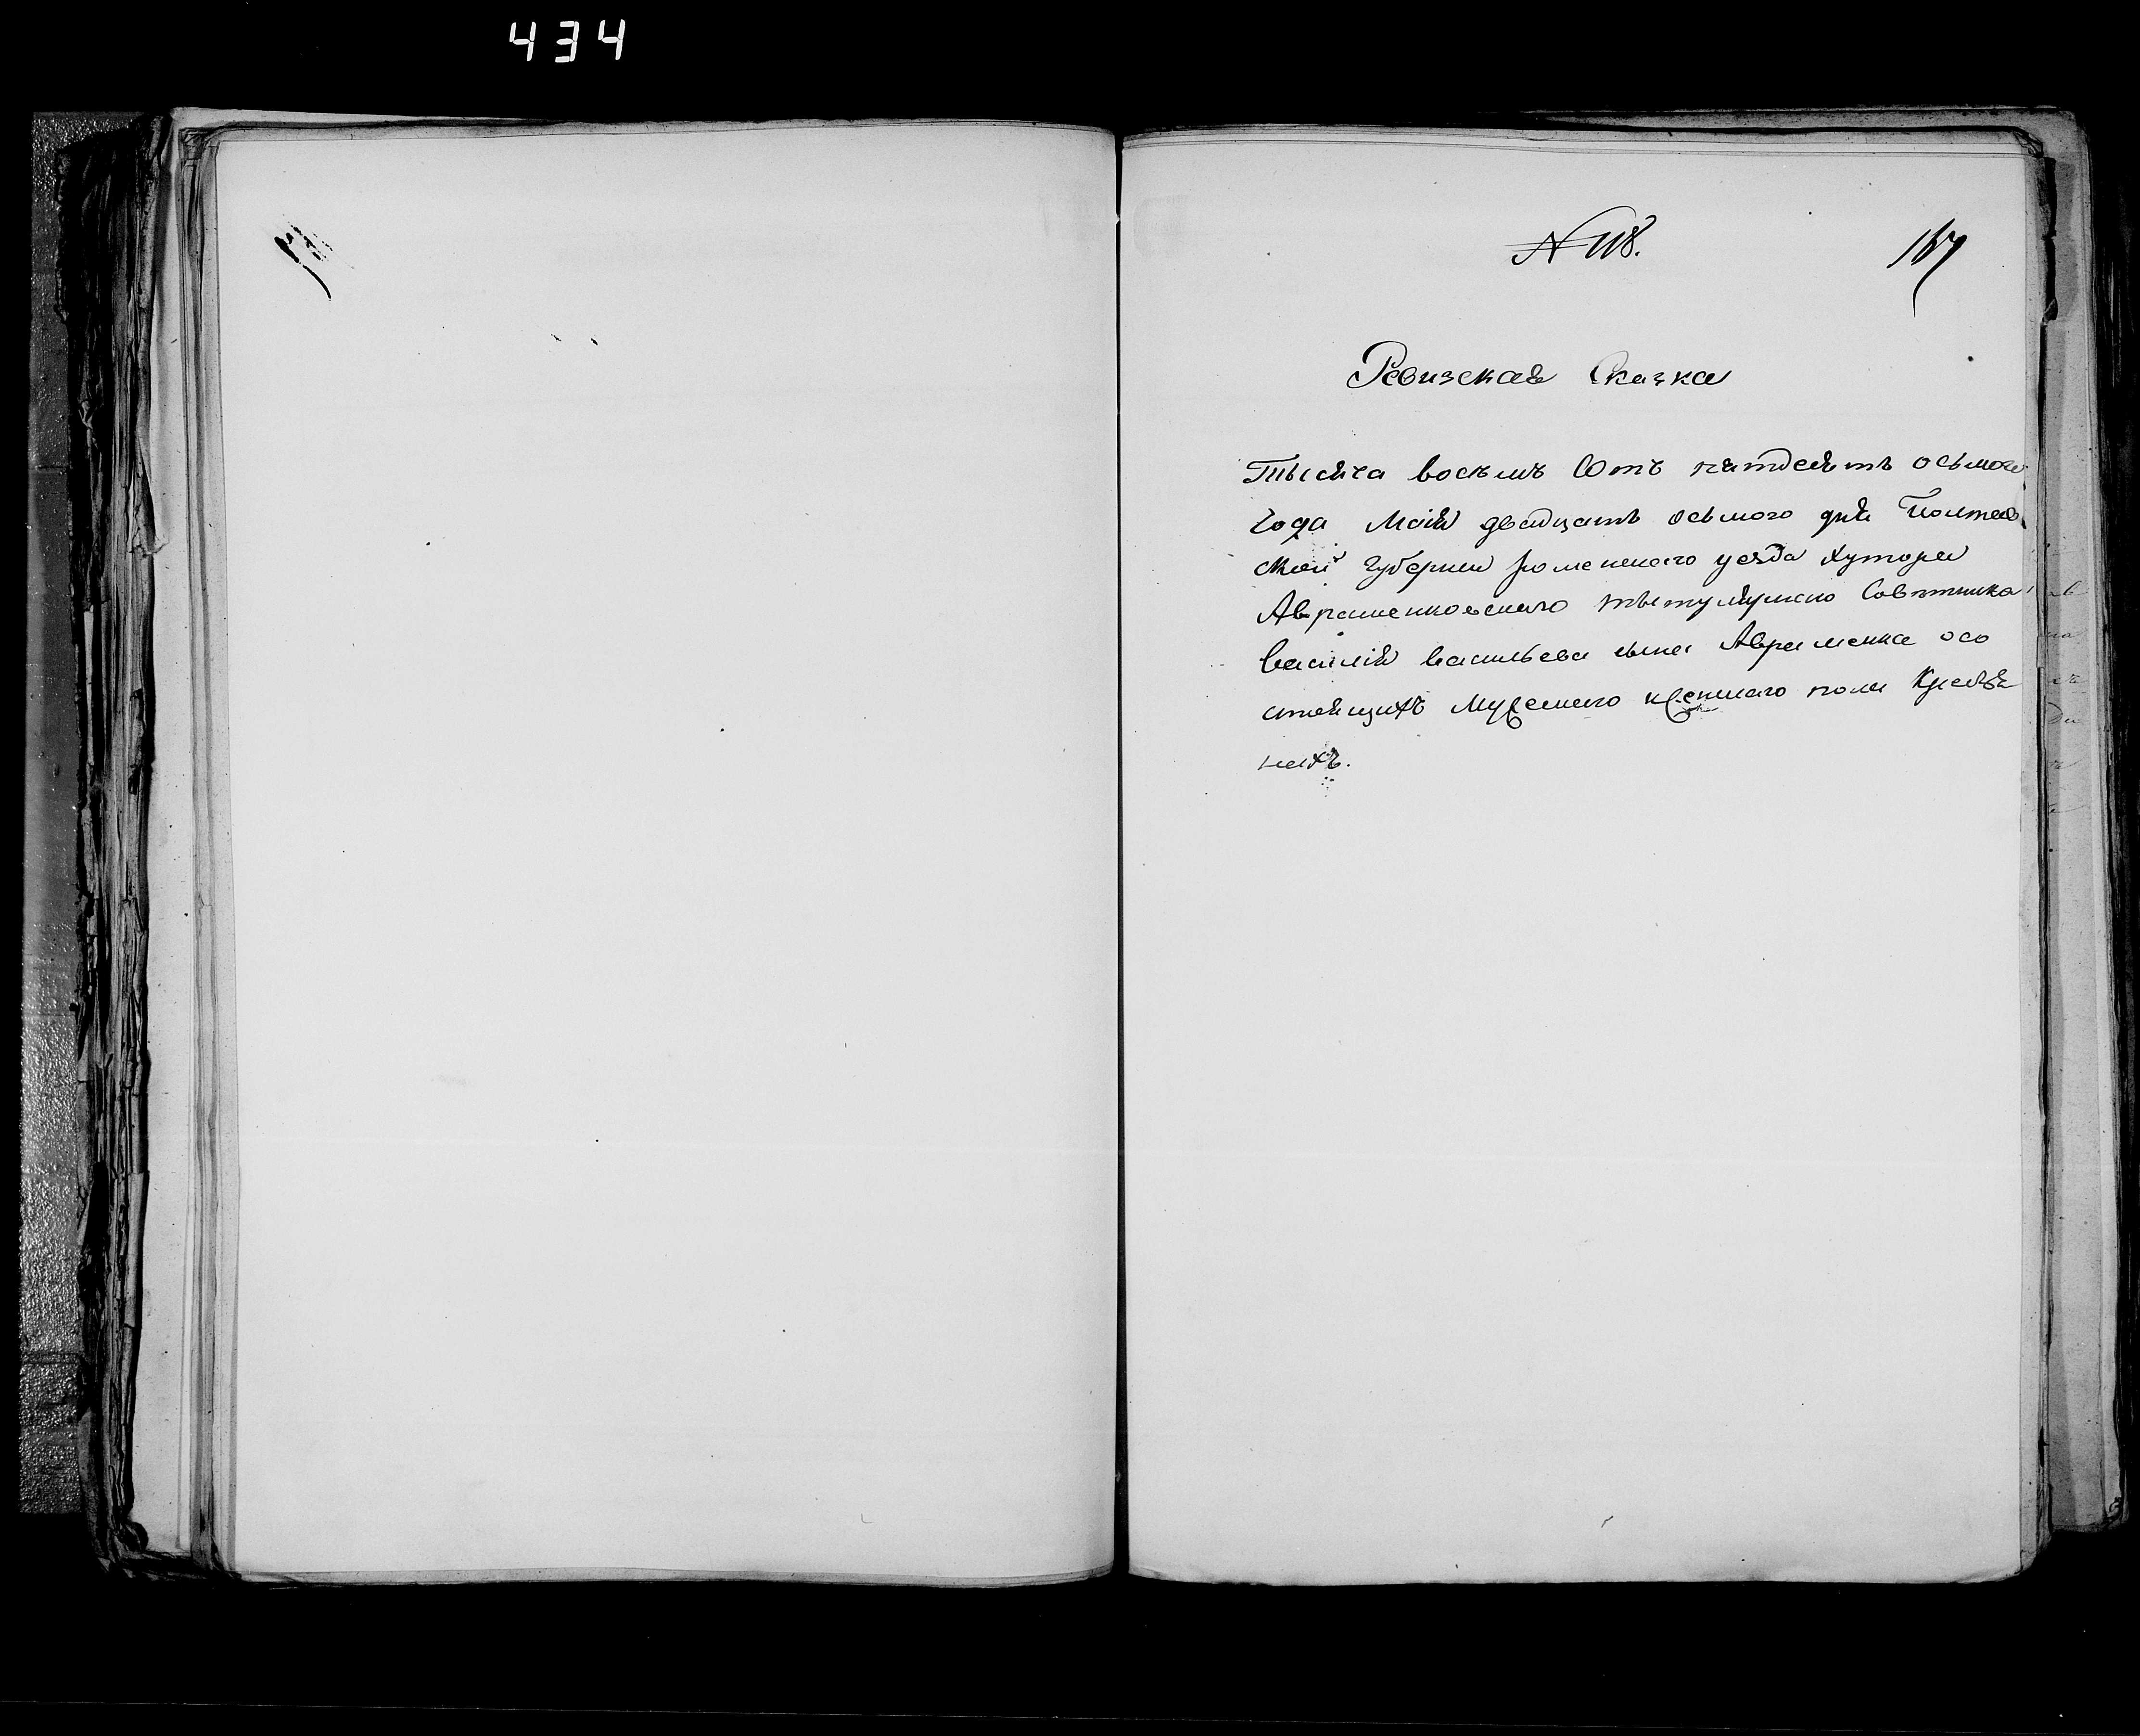 434
N 118.
167
Ревизская Сказка
Тысяча восемъ Сотъ пятдесятъ осьмого
Года Маія двадцать осьмого дня Полтав
ской Губернии роменскаго уезда хутора
Авраменковскаго тытулярнаго Советника
Василія васильева сына Авраменка осо
стоящихъ Мужескаго и женскаго пола Крестя
нахъ.